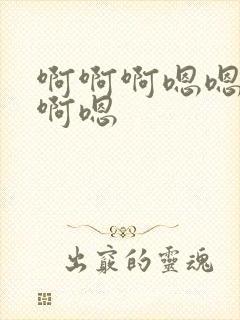 啊啊啊嗯嗯
啊嗯
出窍的靈魂